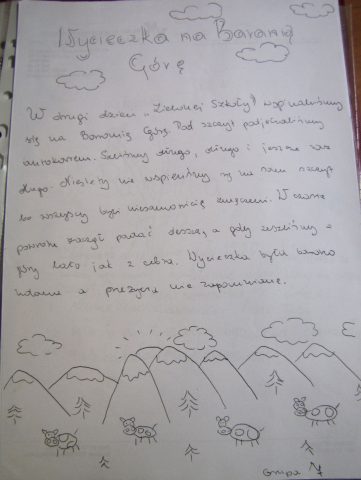 Wycieczka na Baranią
Górę
W drugi dzień "Zielonej Szkoły" wspinaliśmy
się na Baranią Górę. Pod szczyt podjechaliśmy
autokarem. Szliśmy długo, długo i jeszcze raz
długo. Niestety nie wspięliśmy się na sam szczyt
bo wszyscy byli niesamowicie zmęczeni. W czasie
powrotu zaczął padać deszcz, a gdy zeszliśmy z
góry lało jak z cebra. Wycieczka była bardzo
udana a przeżycia nie zapomniane.
Grupa